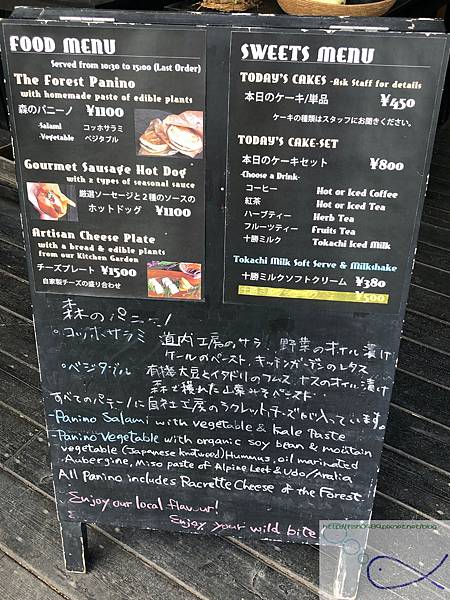 FOOD MENU
Served from 10:30 to 15:00 (Last Order)
The Forest Panino
with homemade paste of edible plants
森のパニーノ ¥1100
-Salami コッホサラミ
-Vegetable ベジタブル
Gourmet Sausage Hot Dog
with 2 types of seasonal sauce
厳選ソーセージと2種のソースの
ホットドッグ ¥1100
Artisan Cheese Plate
with a bread & edible plants
from our Kitchen Garden
チーズプレート ¥1500
自家製チーズの盛り合わせ
SWEETS MENU
TODAY'S CAKES -Ask Staff for details
本日のケーキ/単品 ¥450
ケーキの種類はスタッフにお聞きください。
TODAY'S CAKE-SET
本日のケーキセット ¥800
-Choose a Drink-
コーヒー Hot or Iced Coffee
紅茶 Hot or Iced Tea
ハーブティー Herb Tea
フルーツティー Fruits Tea
十勝ミルク Tokachi Iced Milk
Tokachi Milk Soft Serve & Milkshake
十勝ミルクソフトクリーム ¥380
¥500
森のパニーノ
。コッホサラミ 道内工房のサラミ 野菜のオイル漬け
ケールのペースト、キッチンガーデンのレタス
。ベジタブル 有機大豆とイタドリのフムス ナスのオイル漬け
森で穫れた山菜みそペースト
すべてのパニーノに自社工房のラクレットチーズが入っています。
-Panino Salami with vegetable & kale Paste
-Panino Vegetable with organic soy bean & mountain
vegetable (Japanese knotweed) Hummus, oil marinated
Aubergine, Miso paste of Alpine Leek & Udo/Aralia
All Panino includes Racrette Cheese of the Forest
Enjoy our local flavour!
Enjoy your wild bite